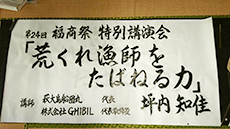 第24回 福商祭 特別講演会
「荒くれ漁師を
たばねる力」
講師 萩大島船団丸 代表
株式会社GHIBLI 代表取締役
坪内知佳